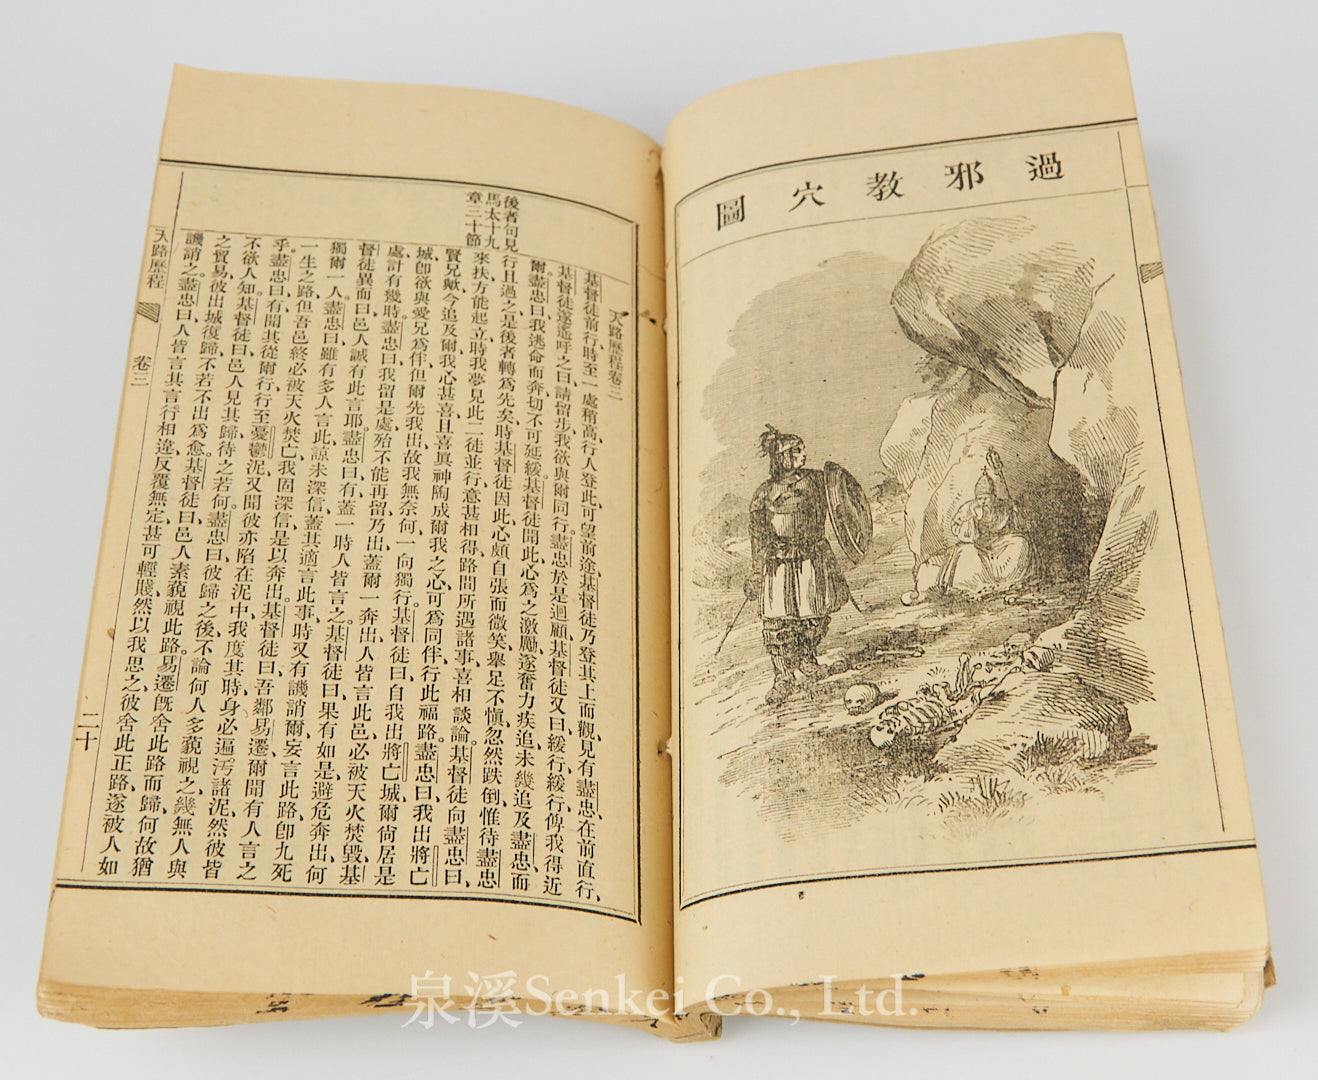 過邪教穴圖
天路歷程卷三
基督徒前行時至一處稍高、行人登此可望前途、基督徒乃登其上而觀、見有盡忠、在前直行、
基督徒遂遙呼之曰、請留步、我欲與爾同行、盡忠於是迴顧、基督徒又曰、緩行緩行、俾我得近
爾、盡忠曰、我逃命而奔、切不可延緩、基督徒聞此、心為之激勵、遂奮力疾追、未幾追及盡忠、而
行且過之、是後者轉為先矣、時基督徒因此心頗自張而微笑、舉足不愼、忽然跌倒、惟待盡忠
來扶方能起立、時我夢見此二徒並行、意甚相得、路間所遇諸事、喜相談論。基督徒向盡忠曰、
賢兄歟、今追及爾、我心甚喜、且喜眞神陶成爾我之心、可為同伴、行此福路。盡忠曰、我出將亡
城、卽欲與愛兄為伴、但爾先我出、故我無奈何、一向獨行。基督徒曰、自我出將亡城、爾尙居是
處、計有幾時、盡忠曰、我留是處、殆不能再留、乃出、蓋爾一奔出、人皆言此邑、必被天火焚毀、基
督徒異而曰、邑人誠有此言耶。盡忠曰、有、蓋一時人皆言之、基督徒曰、果有如是、避危奔出、何
獨爾一人、盡忠曰、雖有多人言此、諒未深信、蓋其適言此事、時又有譏誚爾、妄言此路、卽九死
一生之路、但吾邑終必被天火焚亡、我固深信、是以奔出。基督徒曰、吾鄰易遷、爾聞有人言之
乎。盡忠曰、有聞其從爾行、行至憂鬱泥、又聞彼亦陷在泥中、我度其時、身必遍污諸泥、然彼皆
不欲人知。基督徒曰、邑人見其歸、待之若何。盡忠曰、彼歸之後、不論何人、多藐視之、幾無人與
之貿易、彼出城復歸、不若不出為愈。基督徒曰、邑人素藐視此路、易遷旣舍此路而歸、何故猶
譏誚之。盡忠曰、人皆言其言行相違、反覆無定、甚可輕賤、然以我思之、彼舍此正路、遂被人如
後者句見
馬太十九
章三十節
天路歷程
卷三
二十
泉溪Senkei Co., Ltd.